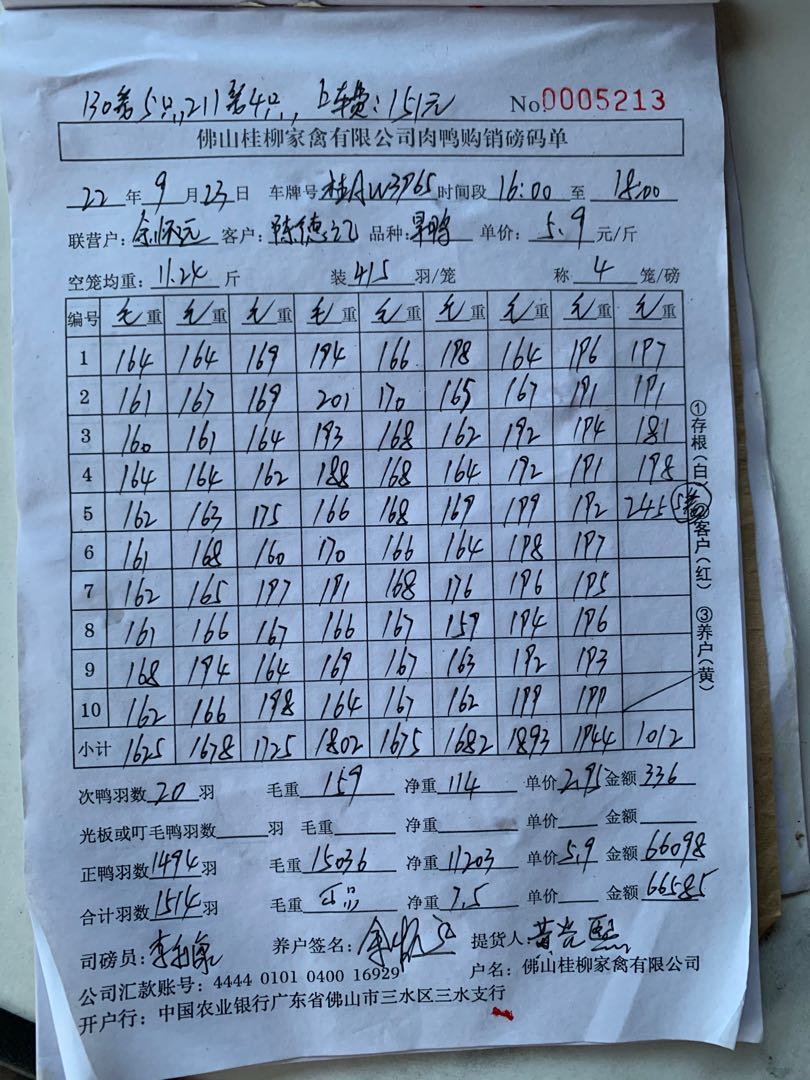 130笼5只,211笼4只,上车费:151元
No:0005213
佛山桂柳家禽有限公司肉鸭购销磅码单
22年9月23日 车牌号桂AW3P65时间段16:00至18:00
联营户: 客户:陈德 品种: 鸭 单价:5.9元/斤
空笼均重:11.24斤 装4/5羽/笼 称4笼/磅
编号 毛重 毛重 毛重 毛重 毛重 毛重 毛重 毛重 毛重
1 164 164 169 194 166 198 164 196 197
2 161 167 169 201 170 165 167 191 191
3 160 161 164 193 168 162 192 194 181
4 164 164 162 188 168 164 192 191 198
5 162 163 175 166 168 169 199 192 245 5笼
6 161 168 160 170 166 164 198 197
7 162 165 197 191 168 176 196 195
8 161 166 167 166 167 159 194 196
9 168 194 164 169 167 163 192 193
10 162 166 198 164 167 162 199 199
小计 1625 1678 1725 1802 1675 1682 1893 1944 1012
①存根(白)②客户(红) ③养户(黄)
次鸭羽数20羽 毛重159 净重114 单价2.95金额336
光板或叮毛鸭羽数 羽 毛重 净重 单价 金额
正鸭羽数1494羽 毛重15036 净重11203 单价5.9金额66098
合计羽数1514羽 毛重 净重7.5 单价 金额66585
司磅员: 养户签名: 提货人
公司汇款账号:4444 0101 0400 16929 户名:佛山桂柳家禽有限公司
开户行:中国农业银行广东省佛山市三水区三水支行